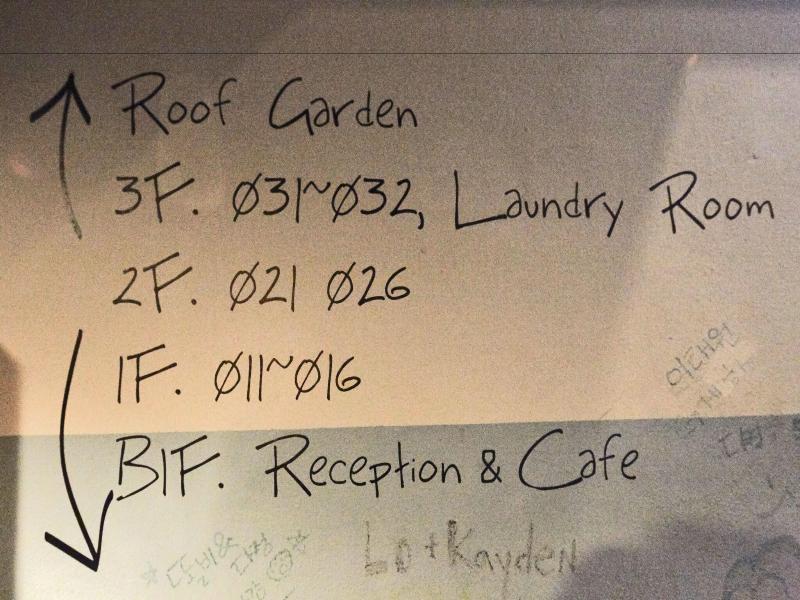 Roof Garden
3F. Ø31~Ø32, Laundry Room
2F. Ø21 Ø26
1F. Ø11~Ø16
B1F. Reception & Cafe
이태원
Lo + Kayden